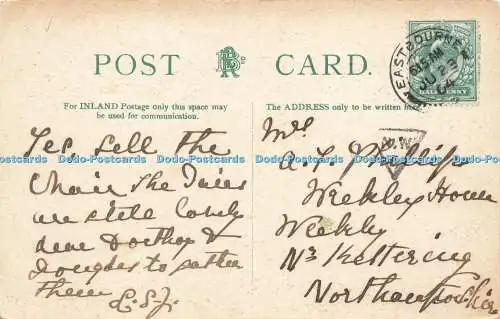 POST CARD.
For INLAND Postage only this space may
be used for communication.
The ADDRESS only to be written here
EASTBOURNE
HALFPENNY
Yes, sell the
Chair The
are still lovely
dear Dorothy &
Douglas to gather
them
Mrs
A. F. Phillips
Weekley House
Weekly
Nr Kettering
Northampton Shire
Dodo-Postcards Dodo-Postcards Dodo-Postcards Dodo-Postcards